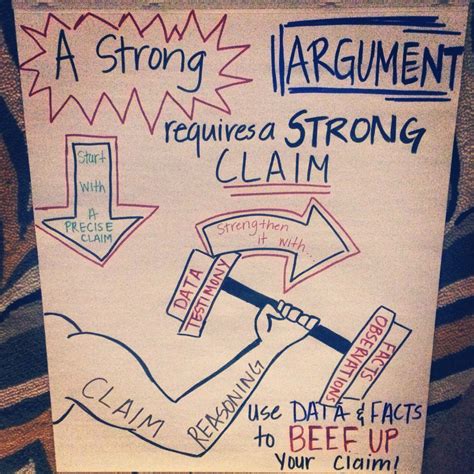 A Strong
ARGUMENT
requires a STRONG
CLAIM
Start
With
A
PRECISE
CLAIM
Strengthen
it with...
DATA
TESTIMONY
FACTS
OBSERVATIONS
CLAIM
REASONING
use DATA & FACTS
to BEEF UP
Your Claim!